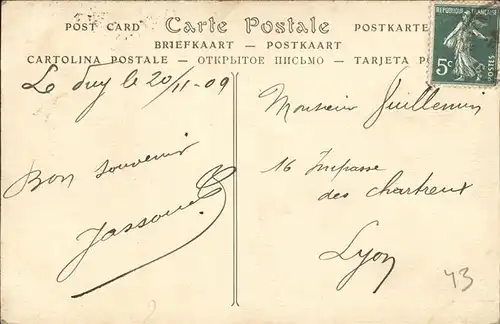 POST CARD Carte Postale POSTKARTE
BRIEFKAART — POSTKAART
CARTOLINA POSTALE — ОТКРЫТОЕ ПИСЬМО — TARJETA PO
RÉPUBLIQUE FRANÇAISE
5c
POSTES
Le Puy le 20/11-09
Bon souvenir
Monsieur Guillemin
16 Impasse
des chartreux
Lyon
43